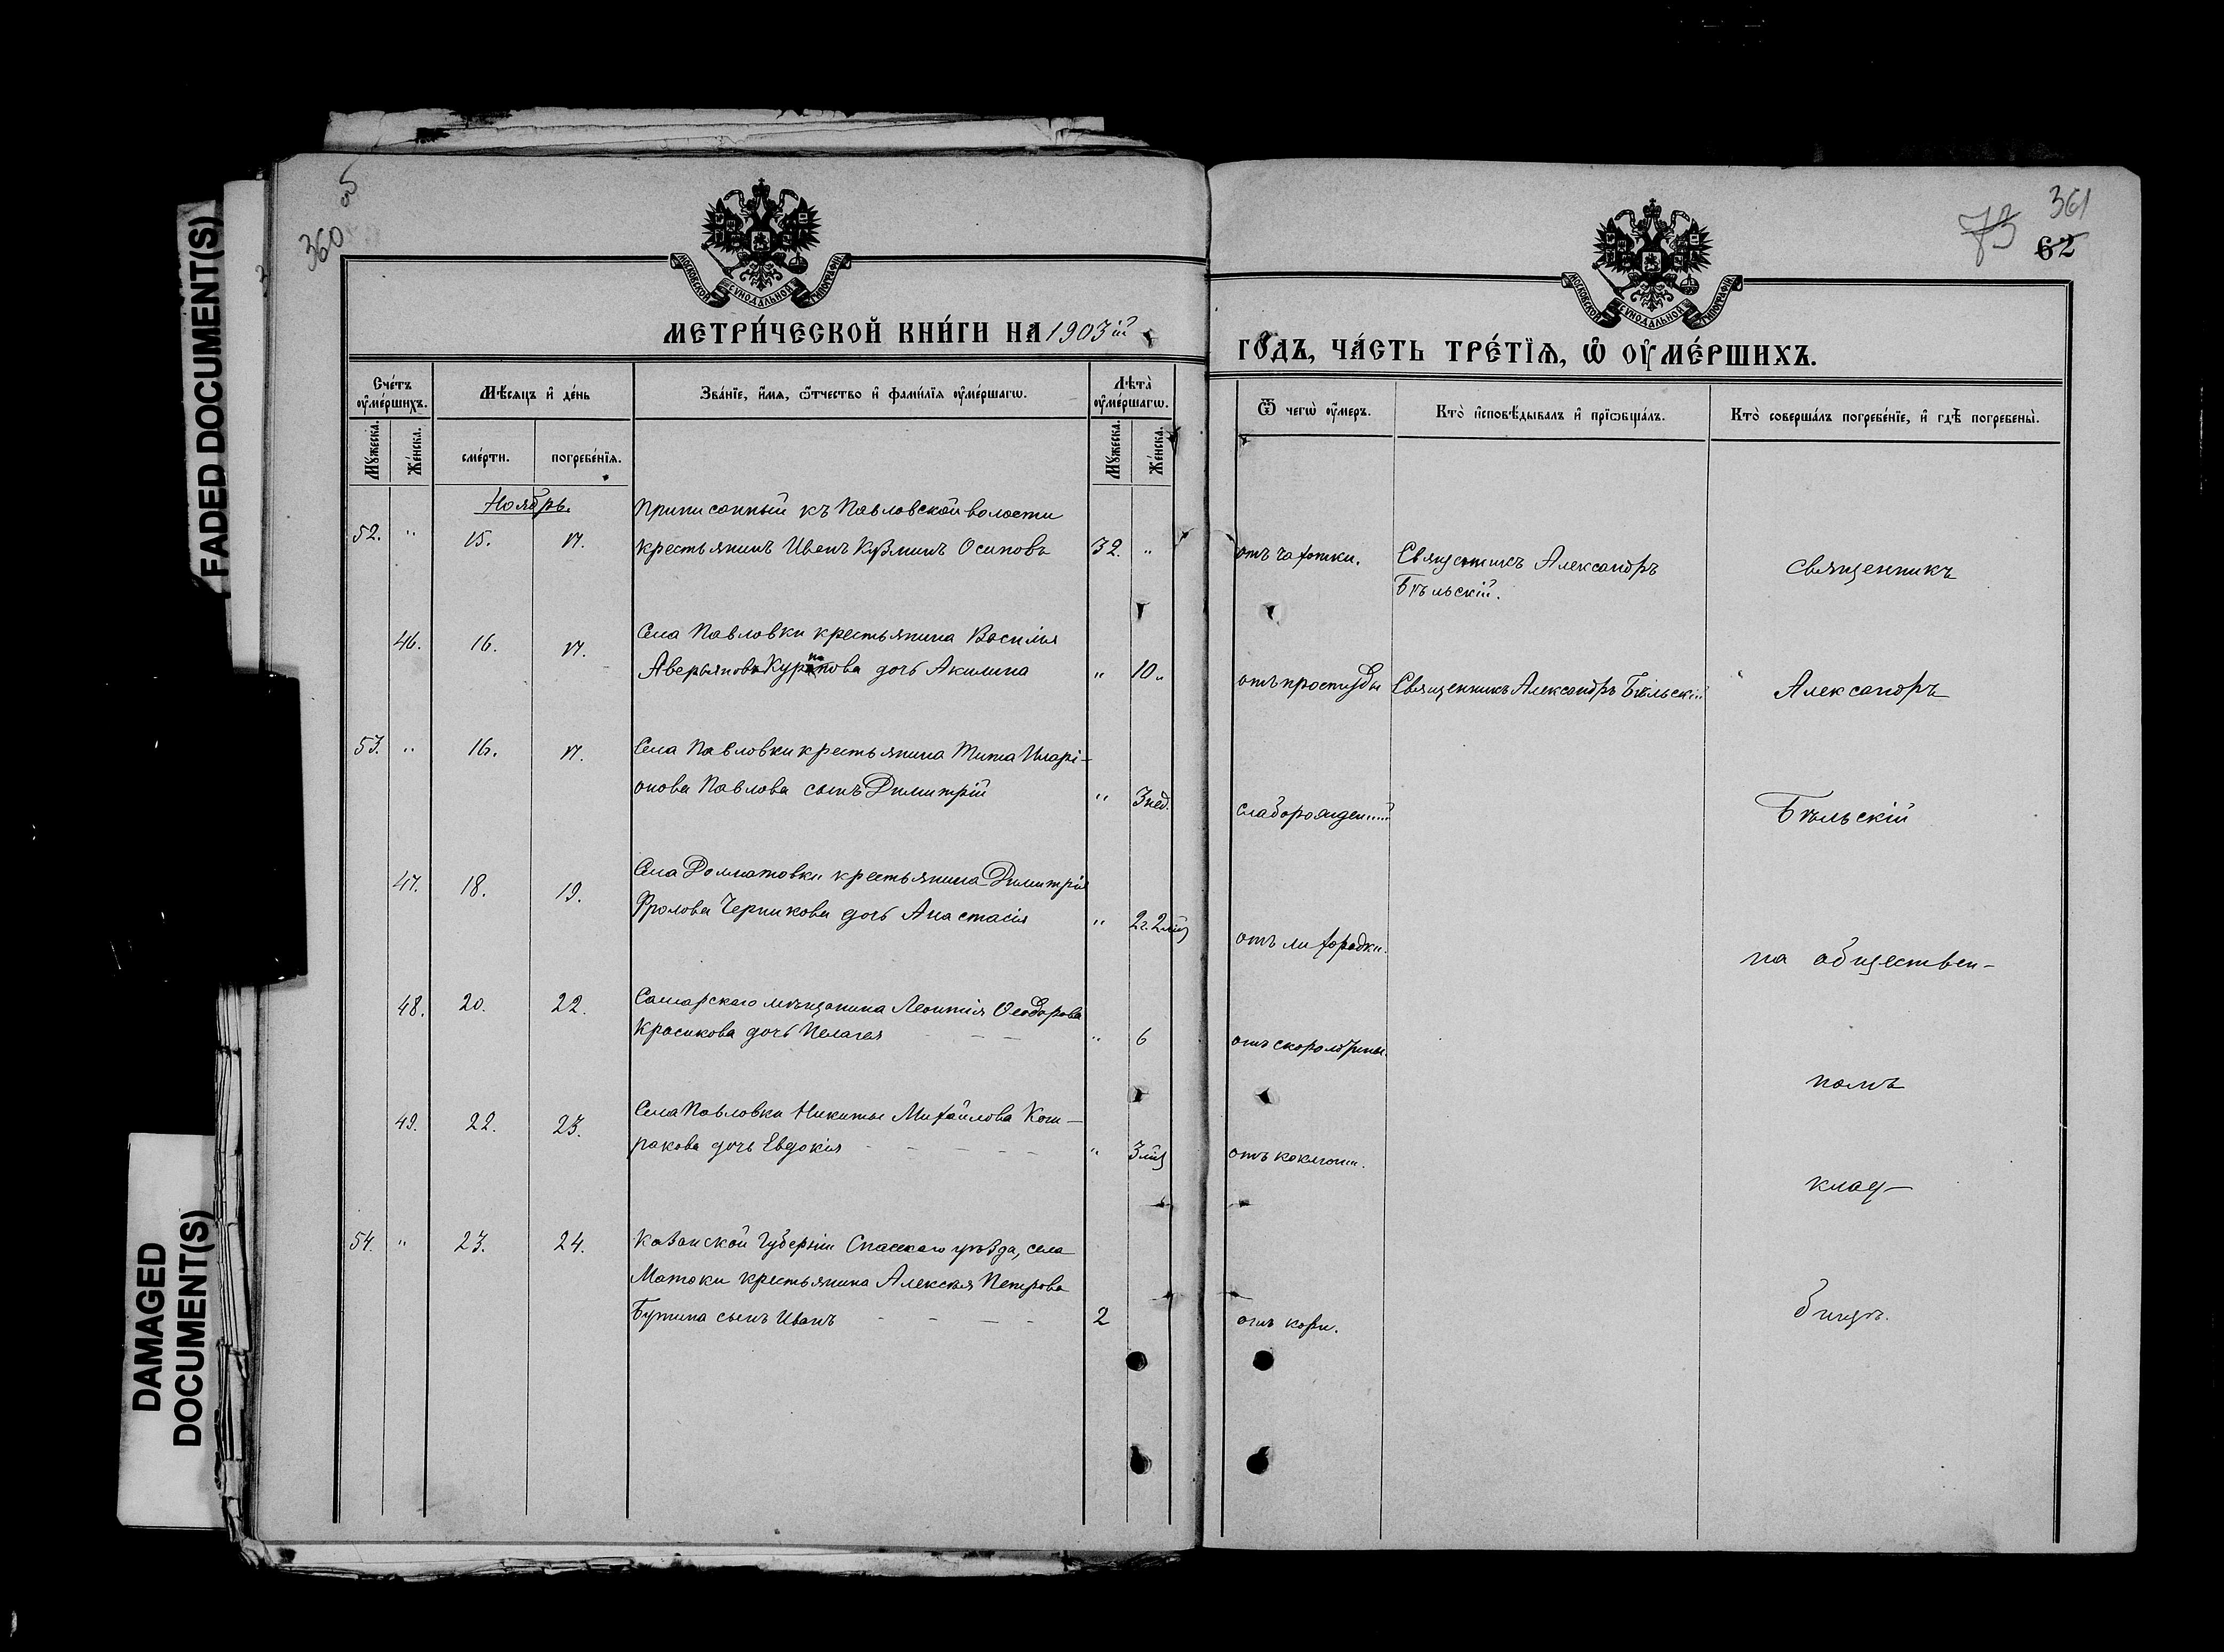 FADED DOCUMENT(S)
DAMAGED
DOCUMENT(S)
360
об
МОСКОВСКОЙ СѴНОДАЛЬНОЙ ТИПОГРАФІИ
МЕТРИ́ЧЕСКОЙ КНИ́ГИ НА 1903ій
Сче́тъ оу҆ме́ршихъ.
Мѣ́сяцъ и҆ де́нь
Зва́нїе, и҆́мя, ѻ҆́тчество и҆ фами́лїя оу҆ме́ршагѡ.
Лѣ́та оу҆ме́ршагѡ.
Му́жеска.
Же́нска.
сме́рти.
погребе́нїя.
Му́жеска.
Же́нска.
Ноябрь.
Приписанный къ Павловской волости
52. " 15. 17. крестьянинъ Иванъ Кузминъ Осиповъ 32. "
46. 16. 17. Села Павловки крестьянина Василія
Аверьянова Курпова дочь Акилина " 10 "
53. " 16. 17. Села Павловки крестьянина Тита Иларі-
онова Павлова сынъ Димитрій " 3 нед.
47. 18. 19. Села Долматовки крестьянина Димитрія
Фролова Черникова дочь Анастасія " 2 г. 2 мѣс
48. 20. 22. Самарскаго мѣщанина Леонтія Ѳеодорова
Красикова дочь Пелагея " 6
49. 22. 23. Села Павловки Никиты Михайлова Кон-
ракова дочь Евдокія " 3 мѣс
54. " 23. 24. Казанской Губерніи Спасскаго уѣзда, села
Матаки крестьянина Алексѣя Петрова
Бутина сынъ Иванъ 2
73
361
62
МОСКОВСКОЙ СѴНОДАЛЬНОЙ ТИПОГРАФІИ
ГО́ДЪ, ЧА́СТЬ ТРЕ́ТЇЯ, Ѡ҆ ОУ҆МЕ́РШИХЪ.
Ѿ чегѡ̀ оу҆́меръ.
Кто̀ и҆сповѣ́дывалъ и҆ прїѡбща́лъ.
Кто̀ соверша́лъ погребе́нїе, и҆ гдѣ̀ погребены̀.
отъ чахотки. Священникъ Александръ
Бѣльскій.
священникъ
отъ простуды Священникъ Александръ Бѣльскій
Александръ
слаборожденный
Бѣльскій
отъ лихорадки.
на обществен-
отъ скарлатины.
номъ
отъ коклюша.
клад-
отъ кори.
бищѣ.